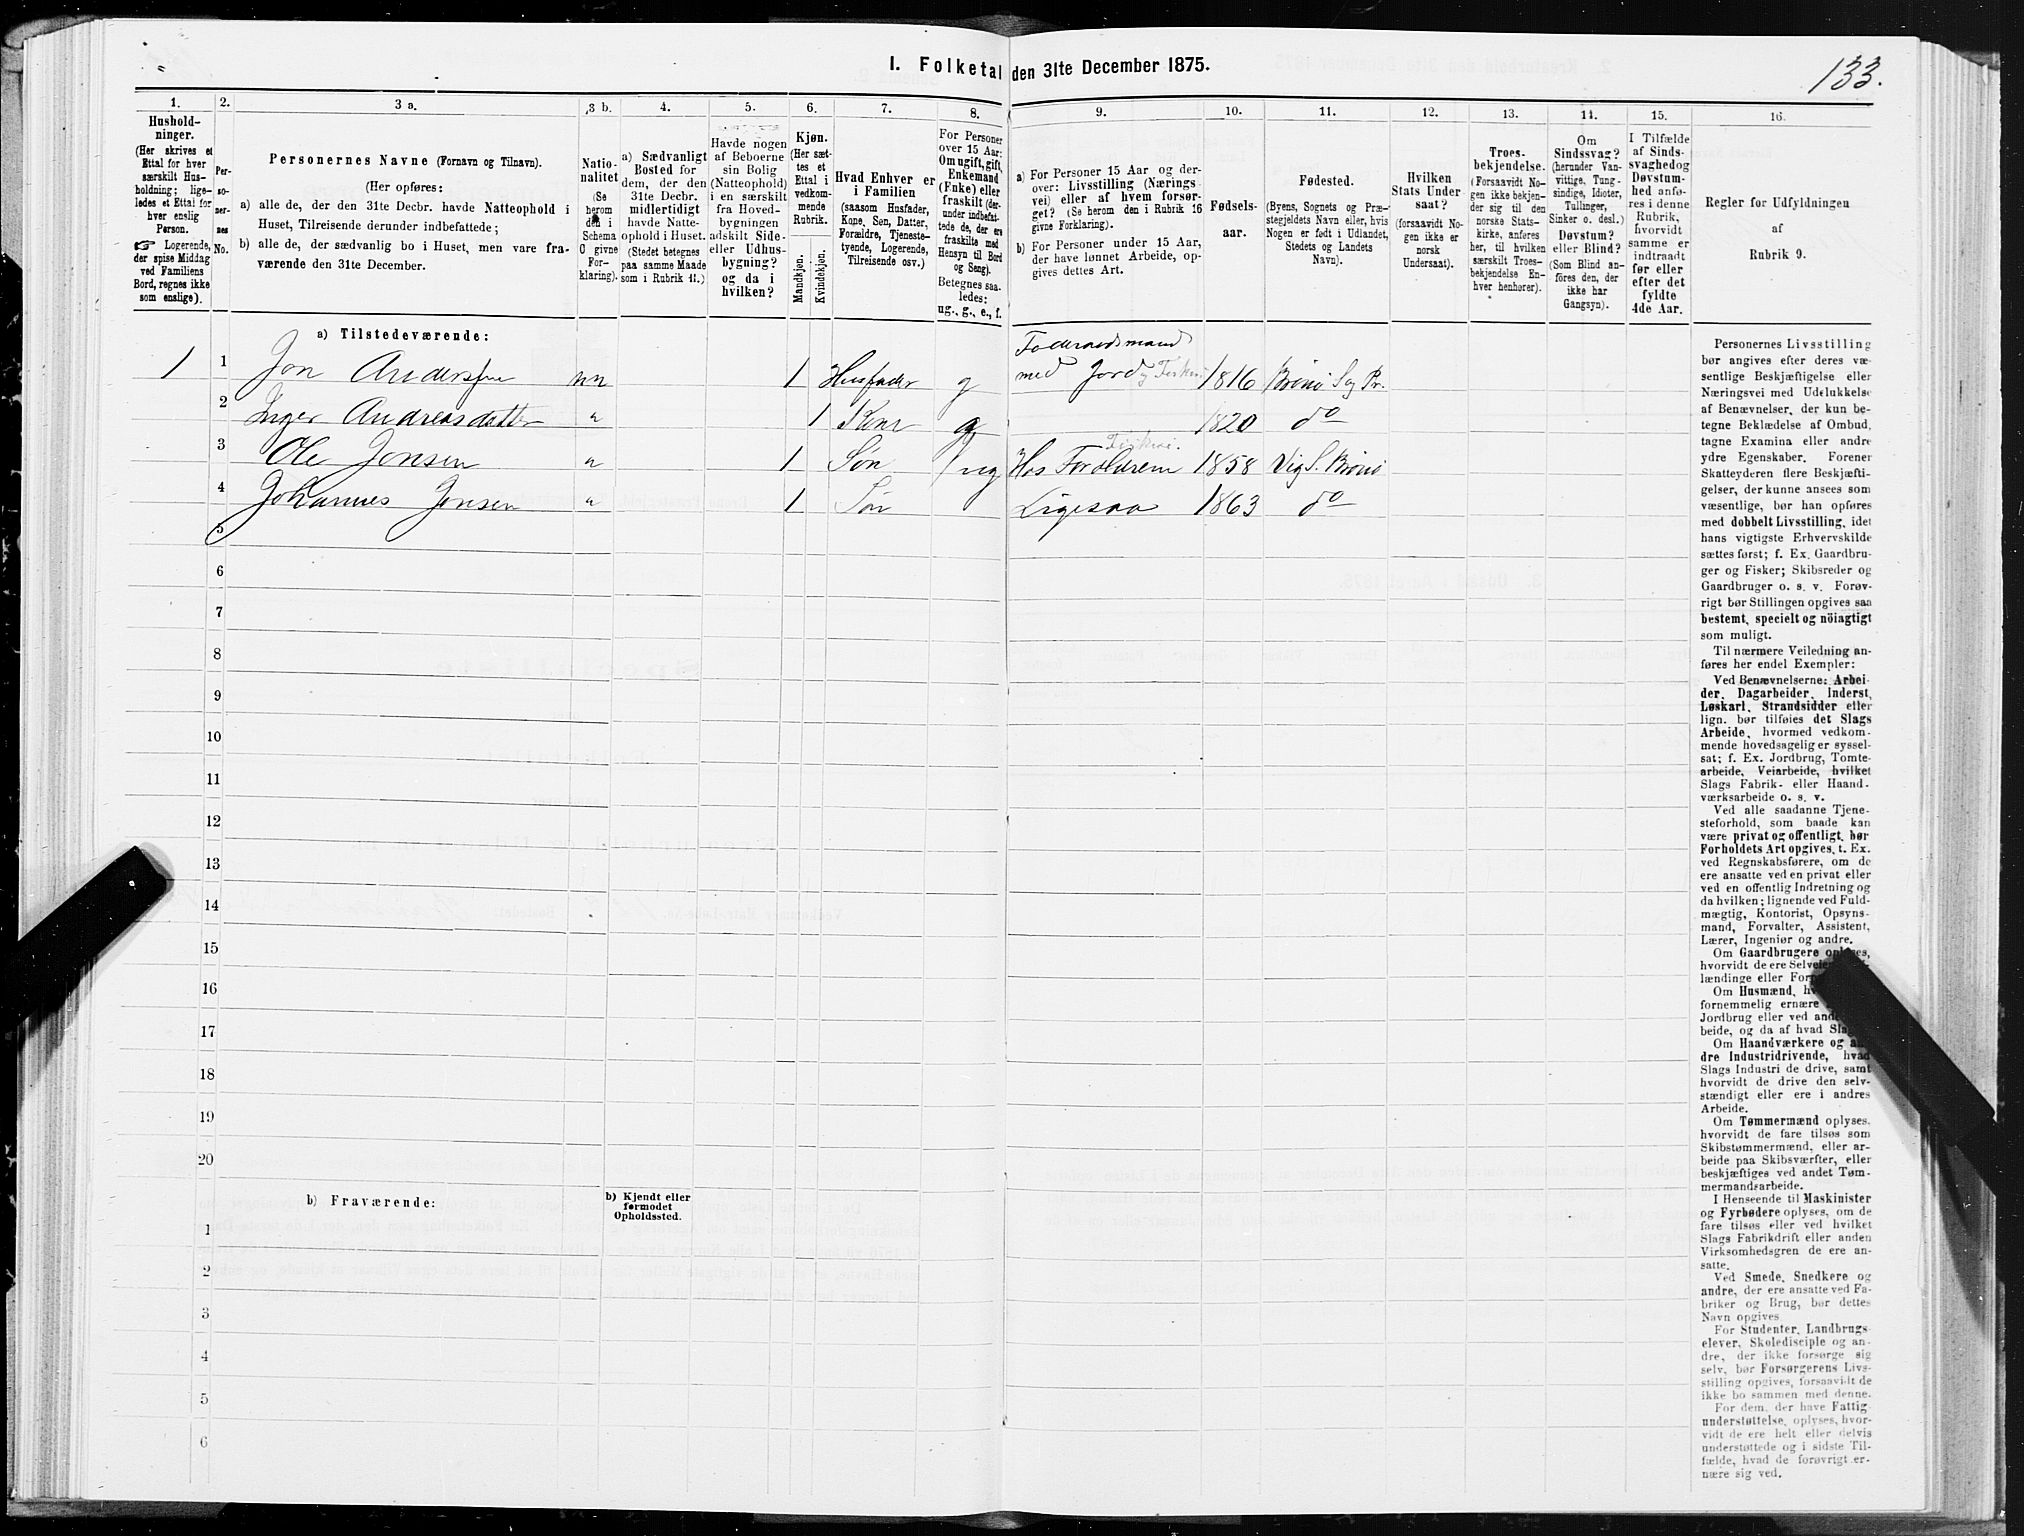 133.
I. Folketal den 31te December 1875.
1. 2. 3 a. 3 b. 4. 5. 6. 7. 8. 9. 10. 11. 12. 13. 14. 15. 16.
Hushold-
ninger.
(Her skrives et
Ettal for hver
særskilt Hus-
holdning; lige-
ledes et Ettal for
hver enslig
Person.
☞ Logerende,
der spise Middag
ved Familiens
Bord, regnes ikke
som enslige).
Per-
so-
ner-
nes
No.
Personernes Navne (Fornavn og Tilnavn).
(Her opføres:
a) alle de, der den 31te Decbr. havde Natteophold i
Huset, Tilreisende derunder indbefattede;
b) alle de, der sædvanlig bo i Huset, men vare fra-
værende den 31te December.
Natio-
nalitet
(Se
herom
den i
Schema
O givne
For-
klaring).
a) Sædvanligt
Bosted for
dem, der den
31te Decbr.
midlertidigt
havde Natte-
ophold i Huset.
(Stedet betegnes
paa samme Maade
som i Rubrik 11.)
Havde nogen
af Beboerne
sin Bolig
(Natteophold)
i en særskilt
fra Hoved-
bygningen
adskilt Side-
eller Udhus-
bygning?
og da i
hvilken?
Kjøn.
(Her sæt-
tes et
Ettal i
vedkom-
mende
Rubrik.
Mandkjøn.
Kvindekjøn.
Hvad Enhver er
i Familien
(saasom Husfader,
Kone, Søn, Datter,
Forældre, Tjeneste-
tyende, Logerende,
Tilreisende osv.)
For Personer
over 15 Aar:
Om ugift, gift,
Enkemand
(Enke) eller
fraskilt (der-
under indbefat-
tede de, der ere
fraskilte med
Hensyn til Bord
og Seng).
Betegnes saa-
ledes:
ug., g., e., f.
a) For Personer 15 Aar og der-
over: Livsstilling (Nærings-
vei) eller af hvem forsør-
get? (Se herom den i Rubrik 16
givne Forklaring).
b) For Personer under 15 Aar,
der have lønnet Arbeide, op-
gives dettes Art.
Fødsels-
aar.
Fødested.
(Byens, Sognets og Præ-
stegjeldets Navn eller, hvis
Nogen er født i Udlandet,
Stedets og Landets
Navn).
Hvilken
Stats Under-
saat?
(forsaavidt No-
gen ikke er
norsk
Undersaat).
Troes-
bekjendelse.
(Forsaavidt No-
gen ikke bekjen-
der sig til den
norske Stats-
kirke, anføres
her, til hvilken
særskilt Troes-
bekjendelse En-
hver henhører).
Om
Sindssvag?
(herunder Van-
vittige, Tung-
sindige, Idioter,
Tullinger,
Sinker o. desl.)
Døvstum?
eller Blind?
(Som Blind an-
føres den, der
ikke har
Gangsyn).
I Tilfælde
af Sinds-
svaghed og
Døvstum-
hed anfø-
res i denne
Rubrik,
hvorvidt
samme er
indtraadt
før eller
efter det
fyldte
4de Aar.
Regler for Udfyldningen
af
Rubrik 9.
a) Tilstedeværende:
Foderaadsmand
1 1 Jon Andersen nn 1 Husfader g med Jord 1816 Brønø Sg Pr.
2 Inger Andreasdatter " 1 Kone g 1820 do
3 Ole Jonsen " 1 Søn ug Hos Forældrene 1858 Vig S. Brønø
4 Johannes Jonsen " 1 Søn Ligesaa 1863 do
5
6
7
8
9
10
11
12
13
14
15
16
17
18
19
20
b) Fraværende:
b) Kjendt eller
formodet
Opholdssted.
1
2
3
4
5
6
Personernes Livsstilling
bør angives efter deres væ-
sentlige Beskjæftigelse eller
Næringsvei med Udelukkelse
af Benævnelser, der kun be-
tegne Beklædelse af Ombud,
tagne Examina eller andre
ydre Egenskaber. Forener
Skatteyderen flere Beskjæfti-
gelser, der kunne ansees som
væsentlige, bør han opføres
med dobbelt Livsstilling, idet
hans vigtigste Erhvervskilde
sættes først; f. Ex. Gaardbru-
ger og Fisker; Skibsreder og
Gaardbruger o. s. v. Forøv-
rigt bør Stillingen opgives saa
bestemt, specielt og nöiagtigt
som muligt.
Til nærmere Veiledning an-
føres her endel Exempler:
Ved Benævnelserne: Arbei-
der, Dagarbeider, Inderst,
Løskarl, Strandsidder eller
lign. bør tilføies det Slags
Arbeide, hvormed vedkom-
mende hovedsagelig er syssel-
sat; f. Ex. Jordbrug, Tomte-
arbeide, Veiarbeide, hvilket
Slags Fabrik- eller Haand-
værksarbeide o. s. v.
Ved alle saadanne Tjene-
steforhold, som baade kan
være privat og offentligt, bør
Forholdets Art opgives, t. Ex.
ved Regnskabsførere, om de
ere ansatte ved en privat eller
ved en offentlig Indretning og
da hvilken; lignende ved Fuld-
mægtig, Kontorist, Opsyns-
mand, Forvalter, Assistent,
Lærer, Ingeniør og andre.
Om Gaardbrugere
hvorvidt de ere
lændinge eller
Om Husmænd,
fornemmelig ernære
Jordbrug eller ved
beide, og da af hvad
Om Haandværkere og
dre Industridrivende, hvad
Slags Industri de drive, samt
hvorvidt de drive den selv-
stændigt eller ere i andres
Arbeide.
Om Tømmermænd oplyses,
hvorvidt de fare tilsøs som
Skibstømmermænd, eller ar-
beide paa Skibsværfter, eller
beskjæftiges ved andet Tøm-
mermandsarbeide.
I Henseende til Maskinister
og Fyrbødere oplyses, om de
fare tilsøs eller ved hvilket
Slags Fabrikdrift eller anden
Virksomhedsgren de ere an-
satte.
Ved Smede, Snedkere og
andre, der ere ansatte ved Fa-
briker og Brug, bør dettes
Navn opgives
For Studenter, Landbrugs-
elever, Skoledisciple og an-
dre, der ikke forsørge sig
selv, bør Forsørgerens Livs-
stilling opgives, forsaavidt de
ikke bo sammen med denne.
For dem, der have Fattig-
understøttelse, oplyses, hvor-
vidt de ere helt eller delvis
understøttede og i sidste Til-
fælde, hvad de forøvrigt er-
nære sig ved.